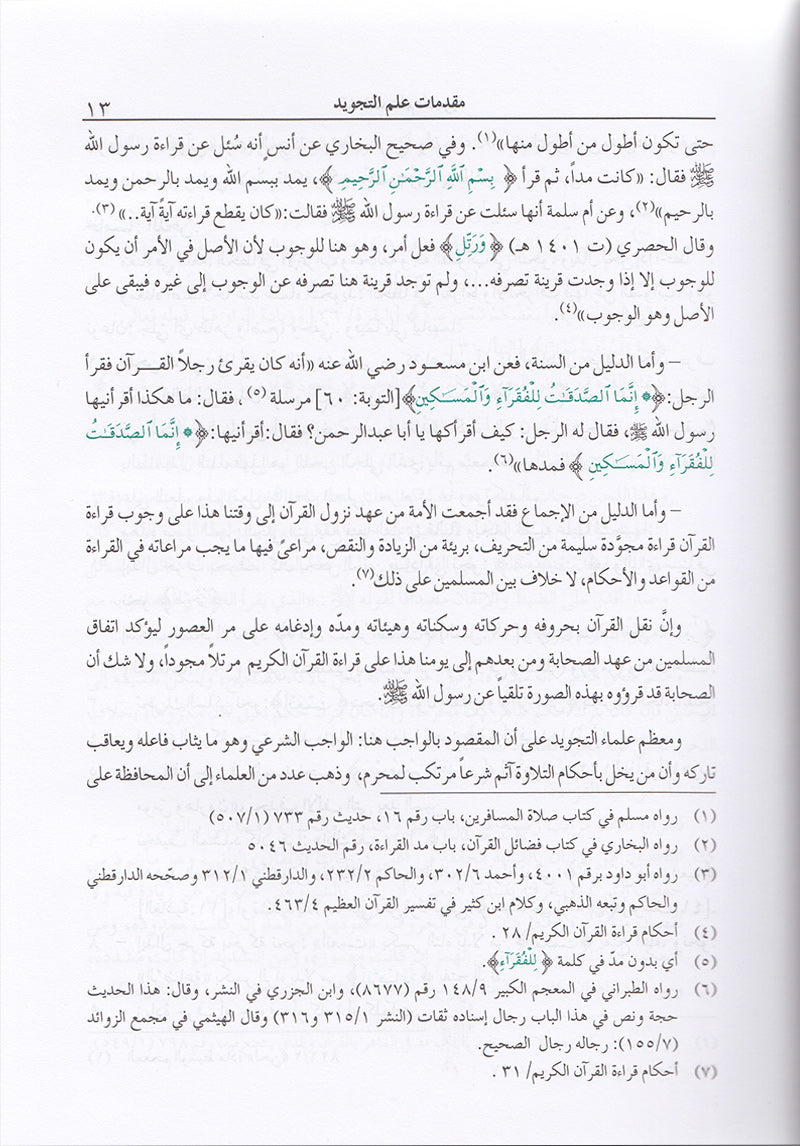 مقدمات علم التجويد ١٣
حتى تكون أطول من أطول منها»(١). وفي صحيح البخاري عن أنسٍ أنه سُئل عن قراءة رسول الله
ﷺ فقال: «كانت مداً، ثم قرأ ﴿ بِسْمِ ٱللَّهِ ٱلرَّحْمَٰنِ ٱلرَّحِيمِ ﴾، يمد ببسم الله ويمد بالرحمن ويمد
بالرحيم»(٢)، وعن أم سلمة أنها سئلت عن قراءة رسول الله ﷺ فقالت:«كان يقطع قراءته آيةً آية..» (٣).
وقال الحصري (ت ١٤٠١ هـ) ﴿ وَرَتِّلِ﴾ فعل أمر، وهو هنا للوجوب لأن الأصل في الأمر أن يكون
للوجوب إلا إذا وجدت قرينة تصرفه...، ولم توجد قرينة هنا تصرفه عن الوجوب إلى غيره فيبقى على
الأصل وهو الوجوب»(٤).
– وأما الدليل من السنة، فعن ابن مسعود رضي الله عنه «أنه كان يقرئ رجلاً القرآن فقرأ
الرجل:﴿۞ إِنَّمَا ٱلصَّدَقَٰتُ لِلْفُقَرَآءِ وَٱلْمَسَٰكِينِ﴾[التوبة: ٦٠] مرسلة (٥)، فقال: ما هكذا أقرأنيها
رسول الله ﷺ، فقال له الرجل: كيف أقرأكها يا أبا عبدالرحمن؟ فقال: أقرأنيها:﴿۞ إِنَّمَا ٱلصَّدَقَٰتُ
لِلْفُقَرَآءِ وَٱلْمَسَٰكِينِ ﴾ فمدها»(٦).
– وأما الدليل من الإجماع فقد أجمعت الأمة من عهد نزول القرآن إلى وقتنا هذا على وجوب قراءة
القرآن قراءة مجوَّدة سليمة من التحريف، بريئة من الزيادة والنقص، مراعىً فيها ما يجب مراعاته في القراءة
من القواعد والأحكام، لا خلاف بين المسلمين على ذلك(٧).
وإنَّ نقل القرآن بحروفه وحركاته وسكناته وهيئاته ومدّه وإدغامه على مر العصور ليؤكد اتفاق
المسلمين من عهد الصحابة ومن بعدهم إلى يومنا هذا على قراءة القرآن الكريم مرتلاً مجوداً، ولا شك أن
الصحابة قد قرؤوه بهذه الصورة تلقياً عن رسول الله ﷺ.
ومعظم علماء التجويد على أن المقصود بالواجب هنا: الواجب الشرعي وهو ما يثاب فاعله ويعاقب
تاركه وأن من يخل بأحكام التلاوة آثم شرعاً مرتكب لمحرم، وذهب عدد من العلماء إلى أن المحافظة على
(١) رواه مسلم في كتاب صلاة المسافرين، باب رقم ١٦، حديث رقم ٧٣٣ (٥٠٧/١)
(٢) رواه البخاري في كتاب فضائل القرآن، باب مد القراءة، رقم الحديث ٥٠٤٦
(٣) رواه أبو داود برقم ٤٠٠١، وأحمد ٣٠٢/٦، والحاكم ٢٣٢/٢، والدارقطني ٣١٢/١ وصحّحه الدارقطني
والحاكم وتبعه الذهبي، وكلام ابن كثير في تفسير القرآن العظيم ٤٦٣/٤.
(٤) أحكام قراءة القرآن الكريم/ ٢٨ .
(٥) أي بدون مدّ في كلمة ﴿ لِلْفُقَرَآءِ﴾.
(٦) رواه الطبراني في المعجم الكبير ١٤٨/٩ رقم (٨٦٧٧)، وابن الجزري في النشر، وقال: هذا الحديث
حجة ونص في هذا الباب رجال إسناده ثقات (النشر ٣١٥/١ و٣١٦) وقال الهيثمي في مجمع الزوائد
(١٥٥/٧): رجاله رجال الصحيح.
(٧) أحكام قراءة القرآن الكريم/ ٣١ .